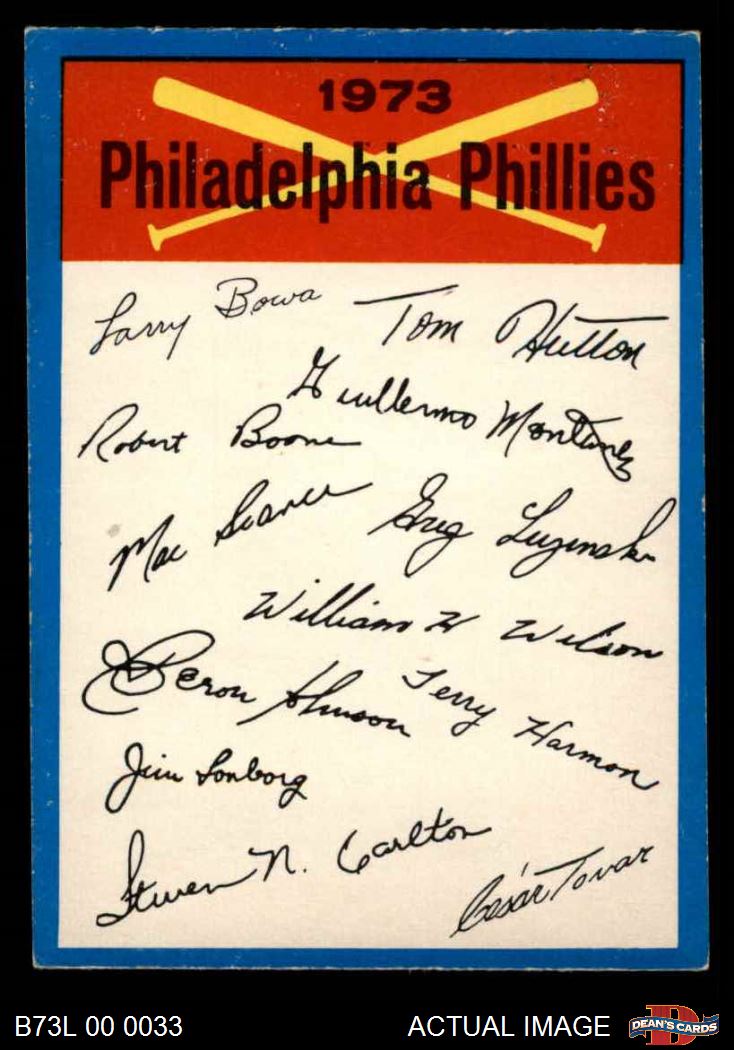 1973
Philadelphia Phillies
Larry Bowa
Tom Hutton
Guillermo Montanez
Robert Boone
Mac Scarce
Greg Luzinski
William H Wilson
Deron Johnson
Terry Harmon
Jim Lonborg
Steven N. Carlton
César Tovar
B73L 00 0033
ACTUAL IMAGE
D
DEAN'S CARDS